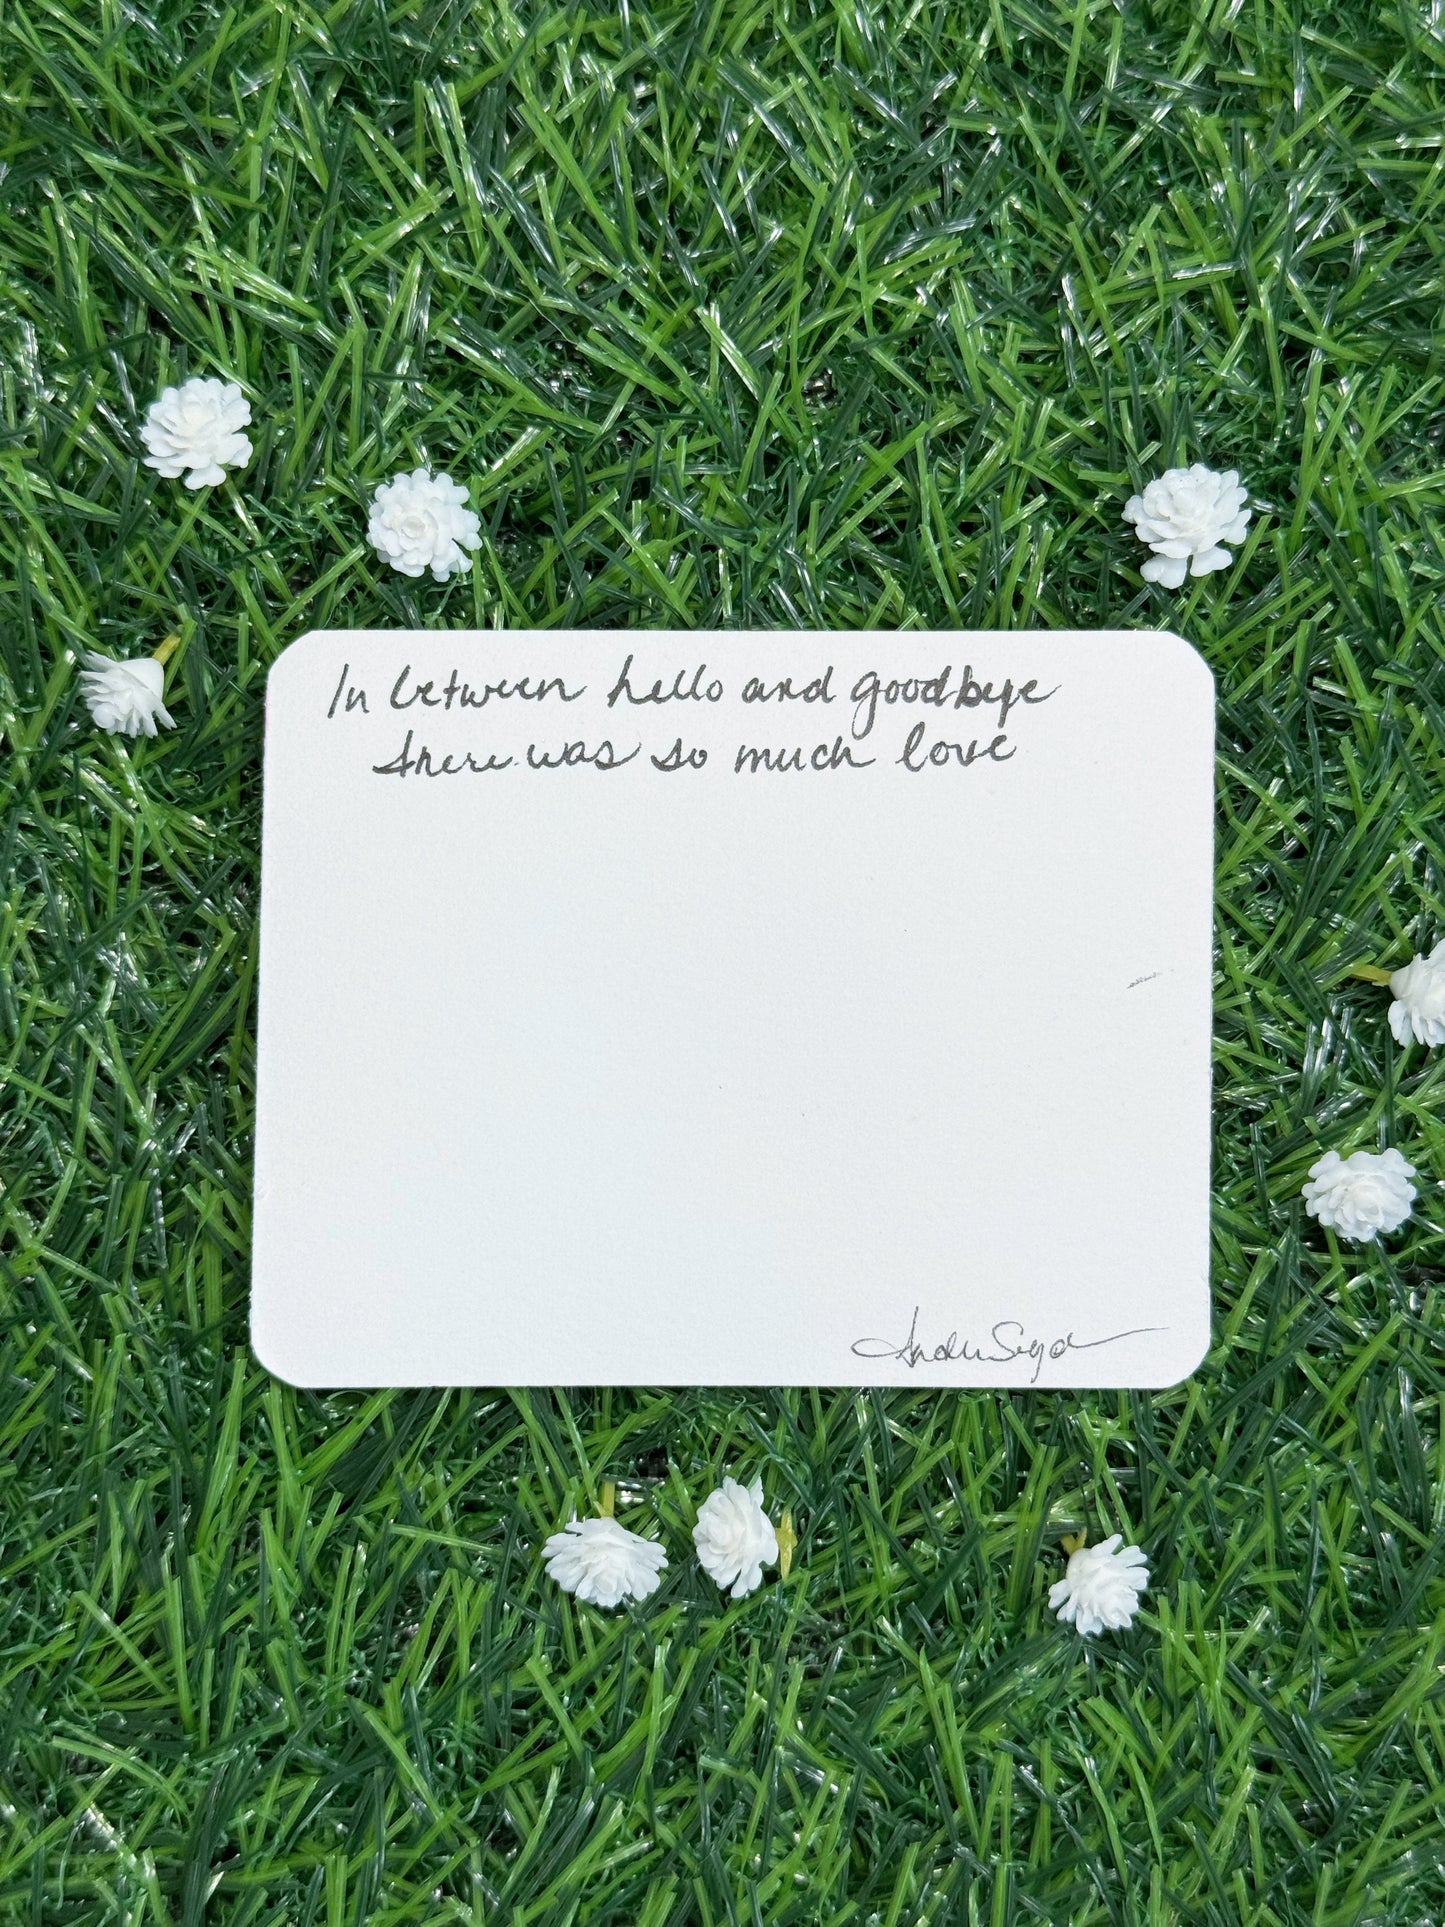 In between hello and goodbye
there was so much love